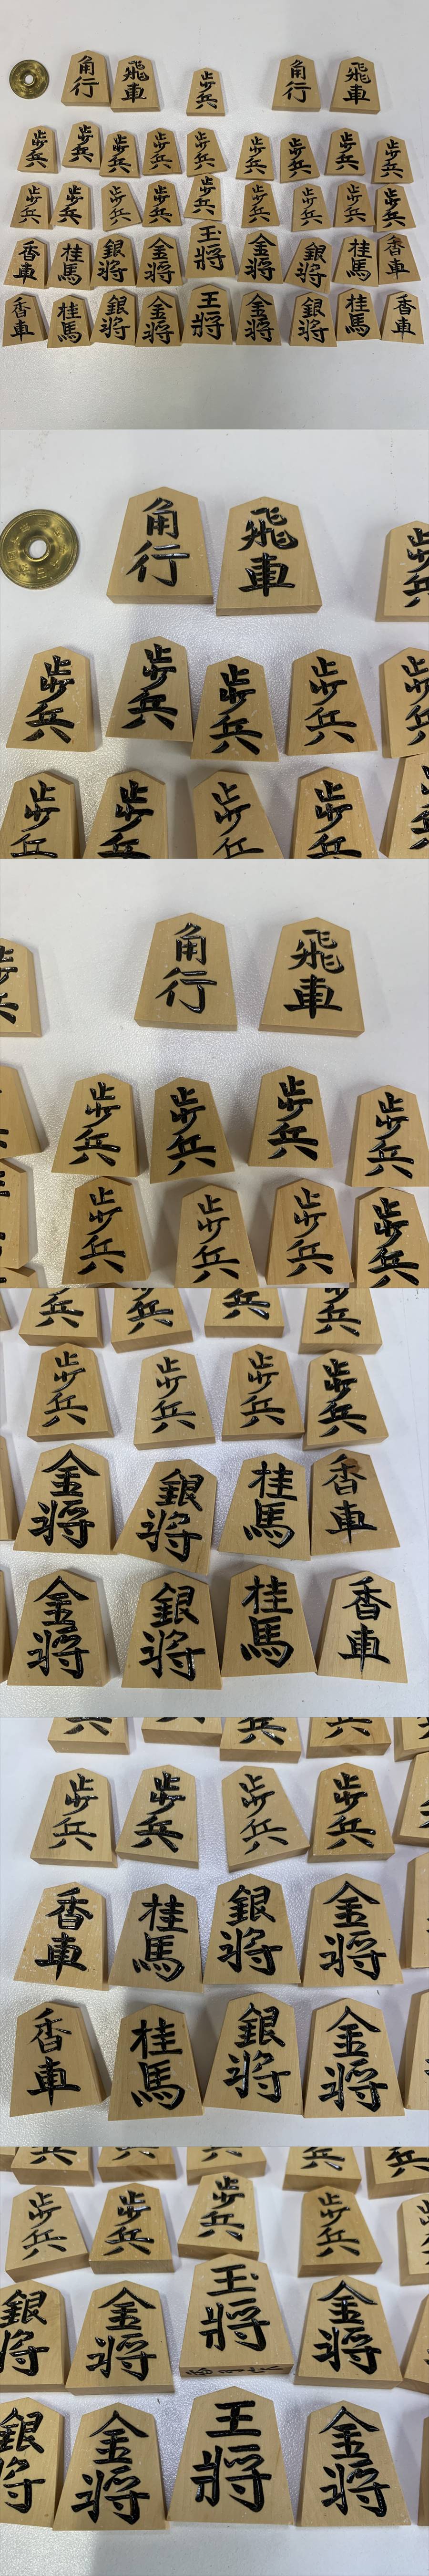 角行 飛車 歩兵 角行 飛車
歩兵 歩兵 歩兵 歩兵 歩兵 歩兵 歩兵 歩兵 歩兵
歩兵 歩兵 歩兵 歩兵 歩兵 歩兵 歩兵 歩兵 歩兵
香車 桂馬 銀将 金将 玉将 金将 銀将 桂馬 香車
香車 桂馬 銀将 金将 王将 金将 銀将 桂馬 香車
角行 飛車 歩兵
歩兵 歩兵 歩兵 歩兵 歩兵
歩兵 歩兵 歩兵 歩兵 歩兵
歩兵 角行 飛車
歩兵 歩兵 歩兵 歩兵
歩兵 歩兵 歩兵 歩兵
兵 兵 兵 兵
歩兵 歩兵 歩兵 歩兵
金将 銀将 桂馬 香車
金将 銀将 桂馬 香車
歩兵 歩兵 歩兵 歩兵
香車 桂馬 銀将 金将
香車 桂馬 銀将 金将
歩兵 歩兵 歩兵 歩兵
銀将 金将 玉将 金将
銀将 金将 王将 金将